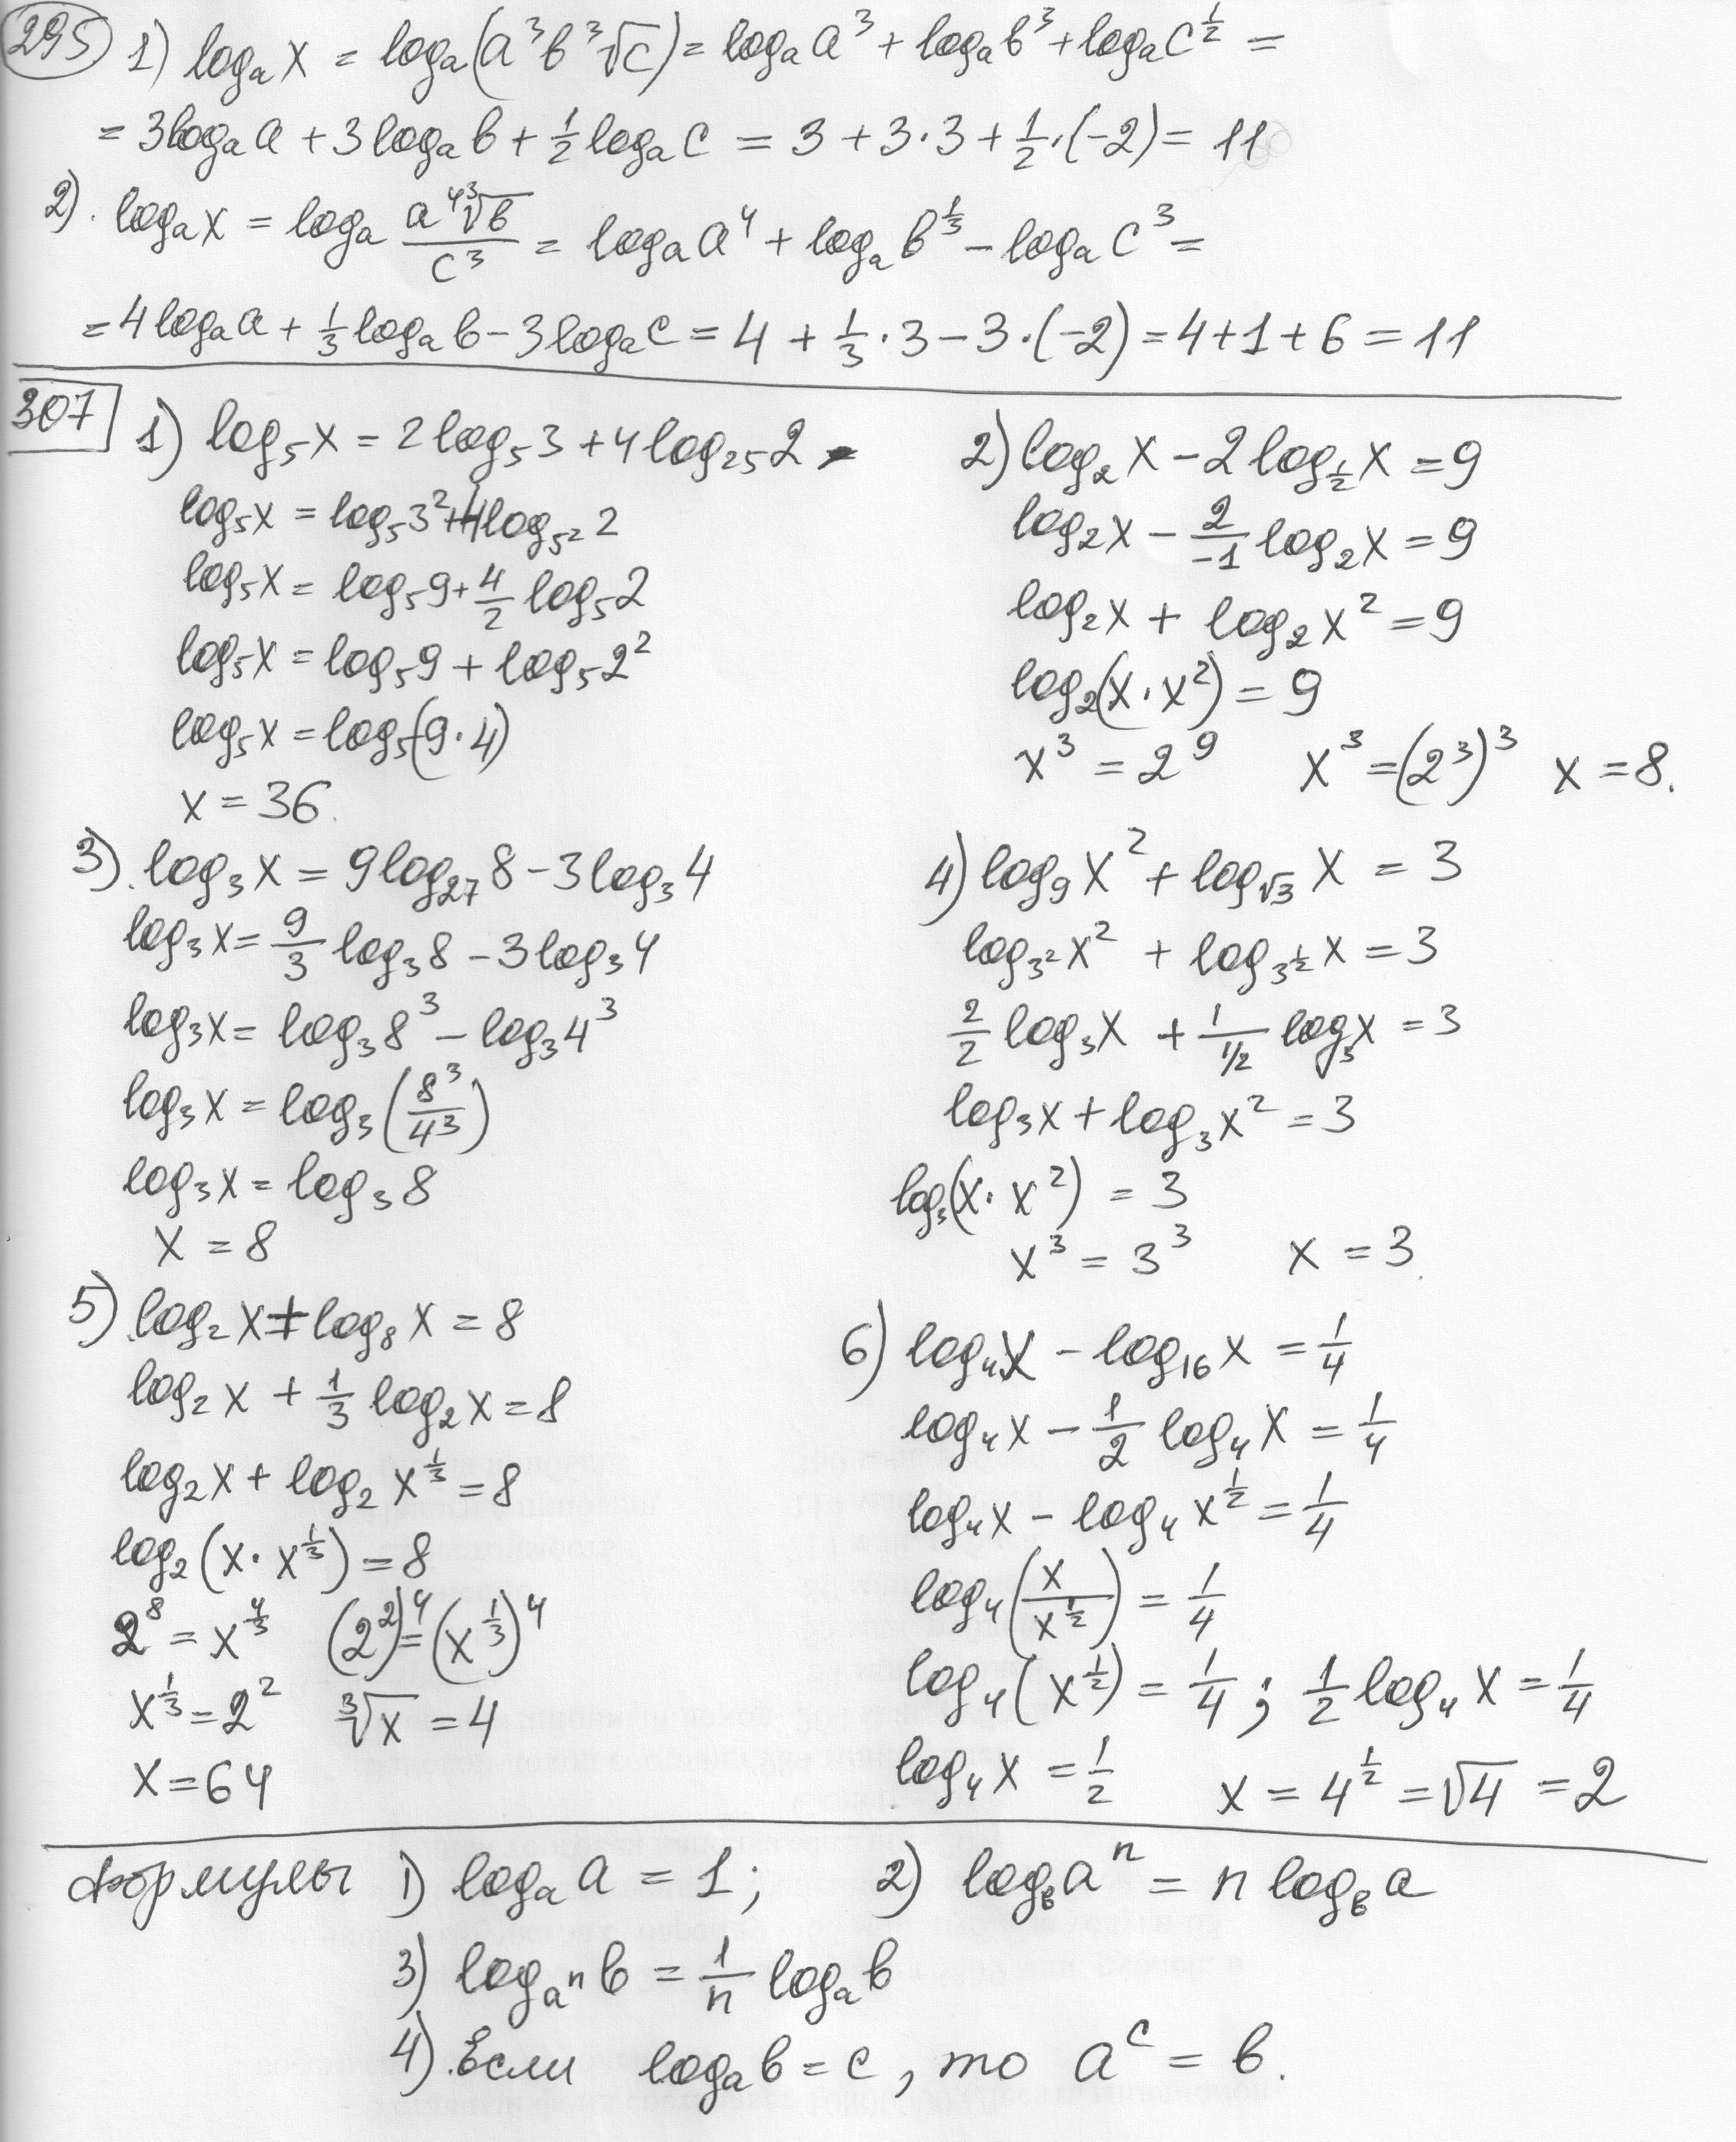 295 1) logₐ x = logₐ(a³b³√c) = logₐ a³ + logₐ b³ + logₐ c^(1/2) =
= 3logₐ a + 3logₐ b + 1/2 logₐ c = 3 + 3·3 + 1/2·(-2) = 11
2). logₐ x = logₐ (a⁴ ³√b)/(c³) = logₐ a⁴ + logₐ b^(1/3) - logₐ c³ =
= 4logₐ a + 1/3 logₐ b - 3logₐ c = 4 + 1/3 · 3 - 3·(-2) = 4+1+6 = 11
307 1) log₅ x = 2log₅ 3 + 4log₂₅ 2
log₅ x = log₅ 3² + 4log_(5²) 2
log₅ x = log₅ 9 + 4/2 log₅ 2
log₅ x = log₅ 9 + log₅ 2²
log₅ x = log₅(9·4)
x = 36.
2) log₂ x - 2log_(1/2) x = 9
log₂ x - 2/-1 log₂ x = 9
log₂ x + log₂ x² = 9
log₂(x·x²) = 9
x³ = 2⁹ x³ = (2³)³ x = 8.
3). log₃ x = 9log₂₇ 8 - 3log₃ 4
log₃ x = 9/3 log₃ 8 - 3log₃ 4
log₃ x = log₃ 8³ - log₃ 4³
log₃ x = log₃ (8³/4³)
log₃ x = log₃ 8
x = 8
4) log₉ x² + log_(√3) x = 3
log_(3²) x² + log_(3^(1/2)) x = 3
2/2 log₃ x + 1/(1/2) log₃ x = 3
log₃ x + log₃ x² = 3
log₃(x·x²) = 3
x³ = 3³ x = 3.
5) log₂ x + log₈ x = 8
log₂ x + 1/3 log₂ x = 8
log₂ x + log₂ x^(1/3) = 8
log₂ (x·x^(1/3)) = 8
2⁸ = x^(4/3) (2²)⁴ = (x^(1/3))⁴
x^(1/3) = 2² ³√x = 4
x = 64
6) log₄ x - log₁₆ x = 1/4
log₄ x - 1/2 log₄ x = 1/4
log₄ x - log₄ x^(1/2) = 1/4
log₄ (x/x^(1/2)) = 1/4
log₄ (x^(1/2)) = 1/4 ; 1/2 log₄ x = 1/4
log₄ x = 1/2 x = 4^(1/2) = √4 = 2
Формулы 1) logₐ a = 1; 2) log_в aⁿ = n log_в a
3) log_(aⁿ) в = 1/n logₐ в
4). Если logₐ в = c, то a^c = в.